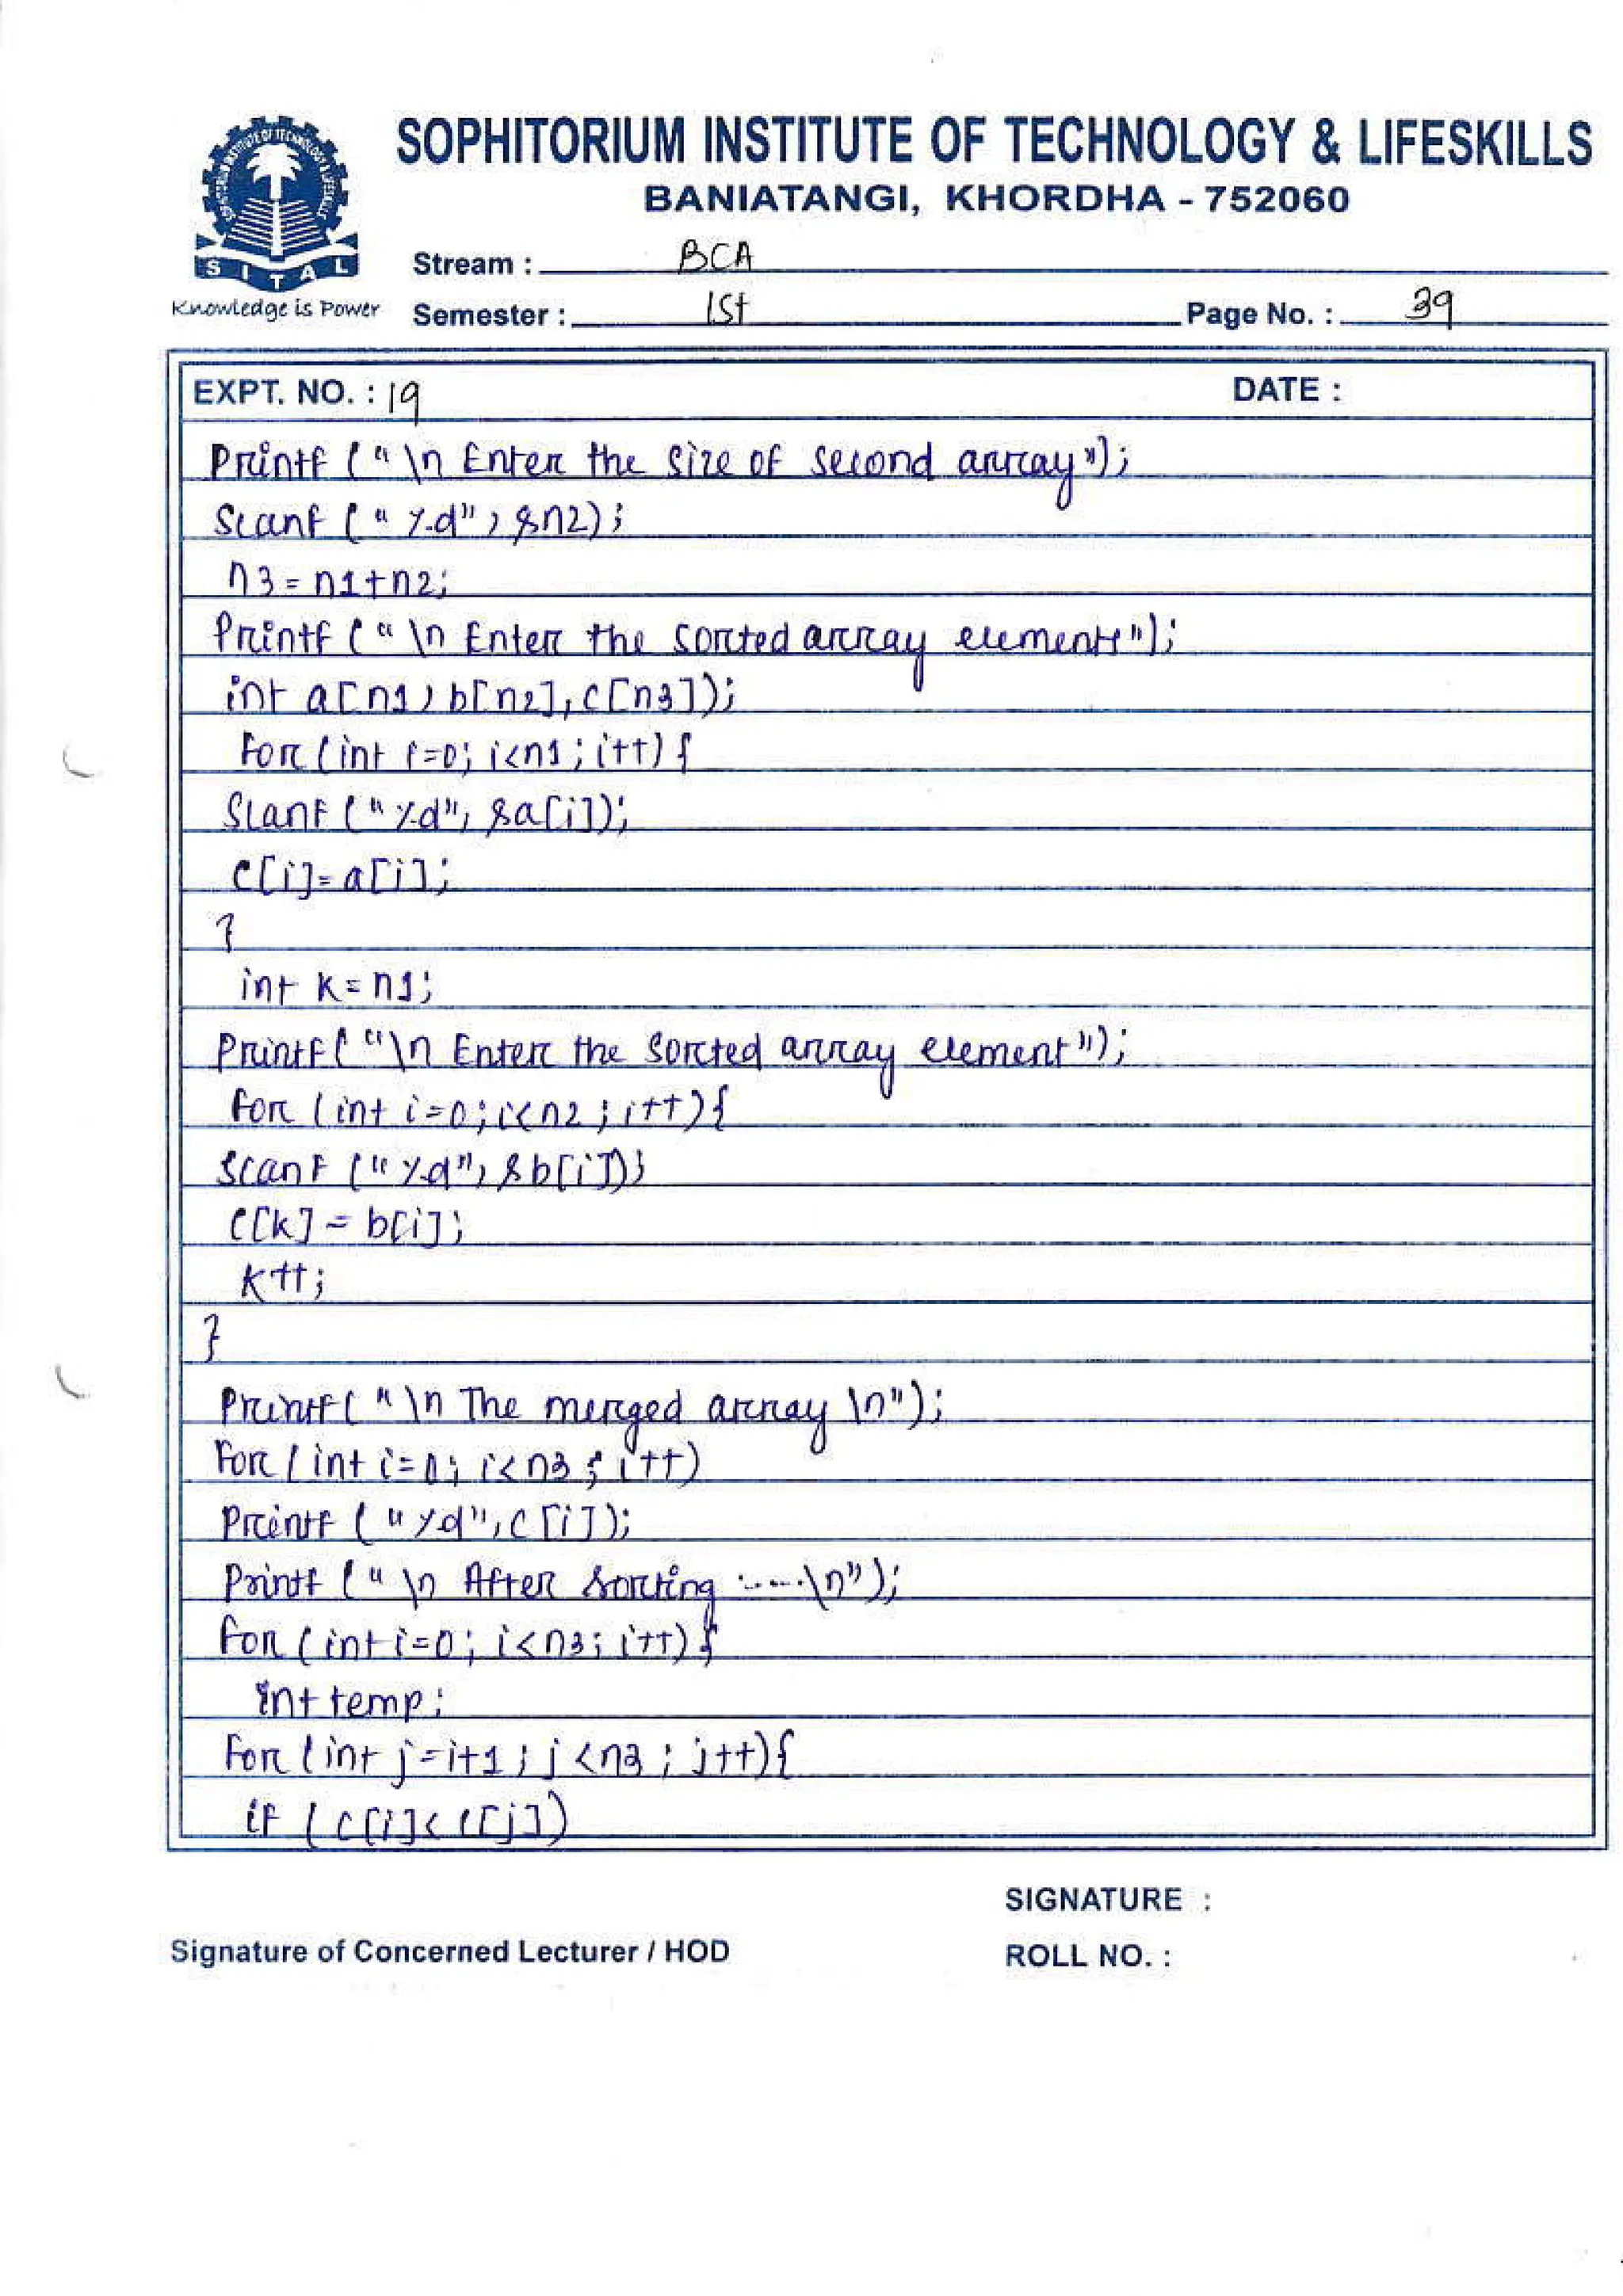 SOPHITORIUM INSTITUTE OF TECHNOLOGY & LIFESKILLS
BANIATANGI, KHORDHA - 752060
SITAL
Knowledge is Power
Stream : BCA
Semester : 1st Page No. : 39
EXPT. NO. : 19 DATE :
Printf ("\n Enter the size of second array");
Scanf ("%d", &n2);
n3 = n1+n2;
Printf ("\n Enter the sorted array element");
int a[n1, b[n2], c[n3]);
For (int i=0; i<n1; i++) {
Scanf ("%d", &a[i]);
c[i]= a[i];
}
int k = n1;
Printf ("\n Enter the Sorted array element");
for (int i=0; i<n2; i++) {
Scanf ("%d", &b[i]);
c[k] = b[i];
k++;
}
Printf ("\n The merged array \n");
For (int i=0; i<n3; i++)
Printf ("%d", c[i]);
Printf ("\n After sorting .....\n");
for (int i=0; i<n3; i++) {
int temp;
For (int j=i+1; j<n3; j++) {
if (c[i]<c[j])
SIGNATURE :
Signature of Concerned Lecturer / HOD
ROLL NO. :